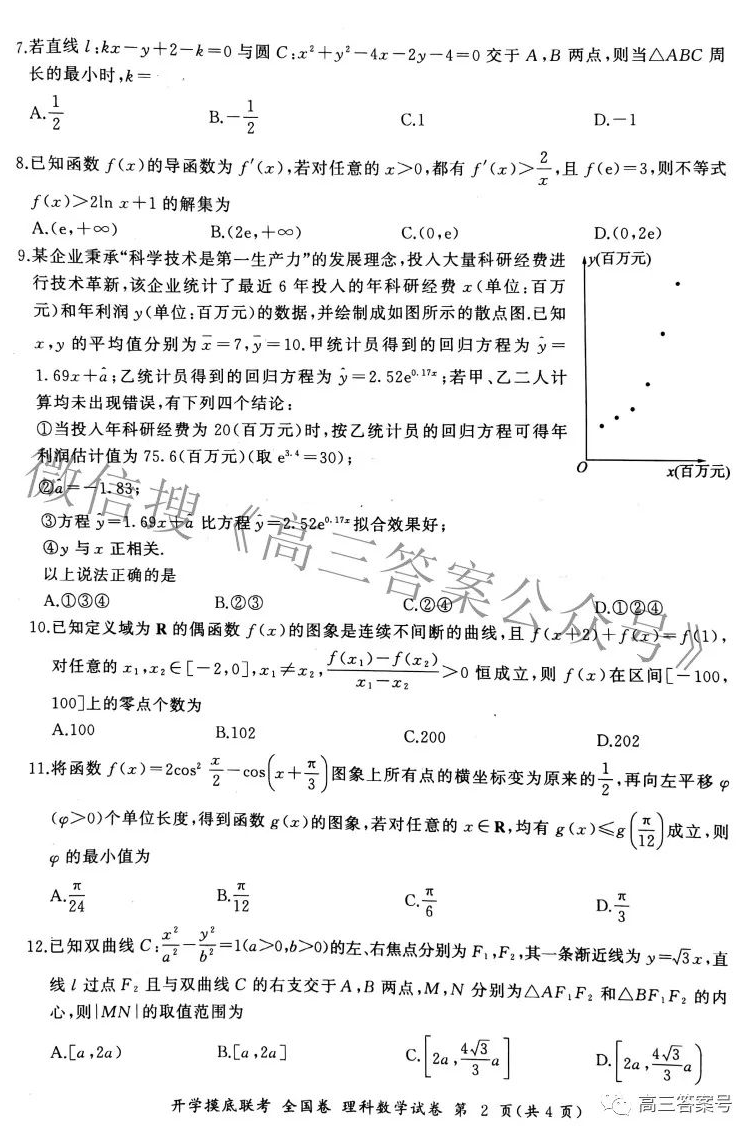 7.若直线 l:kx－y＋2－k＝0 与圆 C:x²＋y²－4x－2y－4＝0 交于 A,B 两点,则当△ABC 周
长的最小时,k＝
A.1/2 B.－1/2 C.1 D.－1
8.已知函数 f(x)的导函数为 f′(x),若对任意的 x＞0,都有 f′(x)＞2/x,且 f(e)＝3,则不等式
f(x)＞2ln x＋1 的解集为
A.(e,＋∞) B.(2e,＋∞) C.(0,e) D.(0,2e)
9.某企业秉承“科学技术是第一生产力”的发展理念,投入大量科研经费进
行技术革新,该企业统计了最近 6 年投入的年科研经费 x(单位:百万
元)和年利润 y(单位:百万元)的数据,并绘制成如图所示的散点图.已知
x,y 的平均值分别为 x̄＝7,ȳ＝10.甲统计员得到的回归方程为 ŷ＝
1.69x＋â;乙统计员得到的回归方程为 ŷ＝2.52e^0.17x;若甲、乙二人计
算均未出现错误,有下列四个结论:
①当投入年科研经费为 20(百万元)时,按乙统计员的回归方程可得年
利润估计值为 75.6(百万元)(取 e^3.4＝30);
②â＝－1.83;
③方程 ŷ＝1.69x＋â 比方程 ŷ＝2.52e^0.17x拟合效果好;
④y 与 x 正相关.
以上说法正确的是
A.①③④ B.②③ C.②④ D.①②④
y(百万元)
O
x(百万元)
10.已知定义域为 R 的偶函数 f(x)的图象是连续不间断的曲线,且 f(x＋2)＋f(x)＝f(1),
对任意的 x₁,x₂∈[－2,0],x₁≠x₂,(f(x₁)－f(x₂))/(x₁－x₂)＞0 恒成立,则 f(x)在区间[－100,
100]上的零点个数为
A.100 B.102 C.200 D.202
11.将函数 f(x)＝2cos² x/2－cos(x＋π/3)图象上所有点的横坐标变为原来的1/2,再向左平移 φ
(φ＞0)个单位长度,得到函数 g(x)的图象,若对任意的 x∈R,均有 g(x)≤g(π/12)成立,则
φ 的最小值为
A.π/24 B.π/12 C.π/6 D.π/3
12.已知双曲线 C:x²/a²－y²/b²＝1(a＞0,b＞0)的左、右焦点分别为 F₁,F₂,其一条渐近线为 y＝√3x,直
线 l 过点 F₂ 且与双曲线 C 的右支交于 A,B 两点,M,N 分别为△AF₁F₂ 和△BF₁F₂ 的内
心,则|MN|的取值范围为
A.[a,2a) B.[a,2a] C.[2a,4√3/3 a] D.[2a,4√3/3 a)
开学摸底联考 全国卷 理科数学试卷 第 2 页(共 4 页)
高三答案号
微信搜《高三答案公众号》